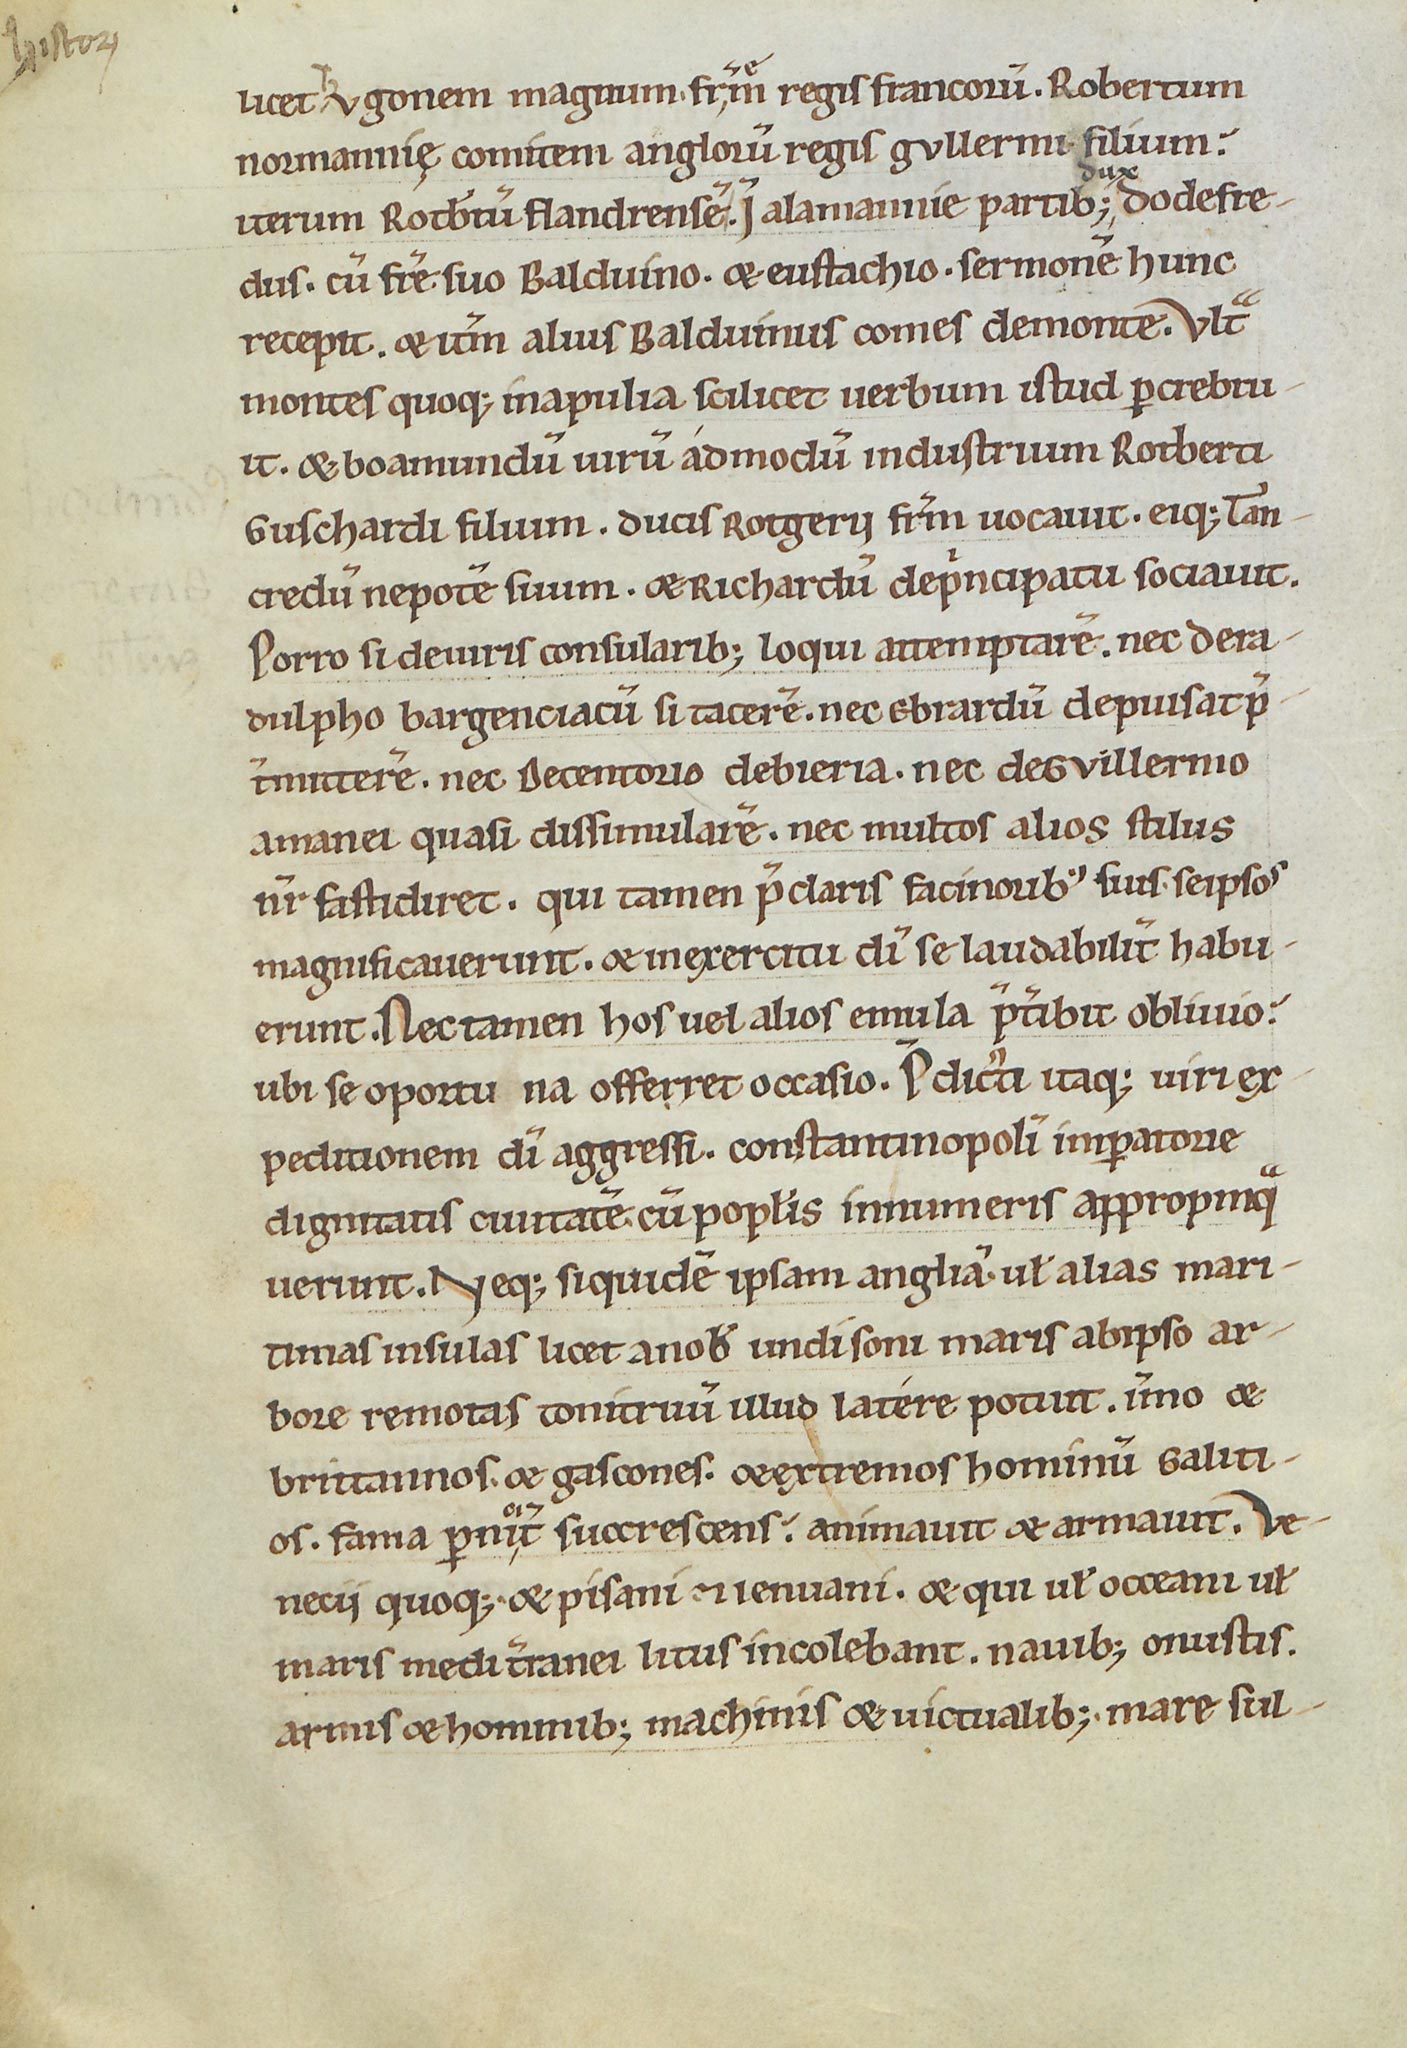 histori
licet hVgonem magnum. fr̄m̄e regis francorū. Robertum
normannię comitem anglorū regis gVllermi filium.
iterum Rotb̄tū flandrensē. I alamannie partib; dux Godefre-
dus. cū fr̄e suo Balduino. & eustachio. sermonē hunc
recepit. & itm̄ alius Balduinus comes demonte. Vlt̄ᵃ
montes quoq; inapulia scilicet uerbum istud p̱crebru-
it. & boamundū uirū admodū industrium Rotberti
Guischardi filium. ducis Rotgerij fr̄m uocauit. eiq; Tan-
credū nepotē suum. & Richardū deprincipatu sociauit.
Porro si deuiris consularib; loqui attemptarē. nec dera-
dulpho bargenciacū si tacerē. nec ebrardū depuisat p̄-
t̄mitterē. nec Decentorio debieria. nec deGVillermo
amanei quasi dissimularē. nec multos alios stilus
nr̄ fastidiret. qui tamen p̄claris facinorib᷒ suis seipsos
magnificauerunt. & inexercitu dī se laudabilit̄ habu-
erunt. Nec tamen hos uel alios emula p̄t̄ibit obliuio.
ubi se oportu na offerret occasio. P̄dicti itaq; uiri ex-
peditionem dī aggressi. constantinopolī imp̱atorie
dignitatis ciuitatē. cū poplis innumeris appropinqᵃ
uerunt. Neq; siquidē ipsam angliā. ul̄ alias mari-
timas insulas licet anob̄ undisoni maris abipso ar-
bore remotas tonitruū illud latére potuit. im̄o &
brittannos. & gascones. & extremos hominū Galiti-
os. fama p̱nicit̄ succrescens. animauit & armauit. Ve-
necii quoq;. & pisani ⁊ ienuani. & qui ul̄ occeani ul̄
maris medit̄ranei litus incolebant. nauib; onustis.
armis & hominib; machinis & uictualib;. mare sul-